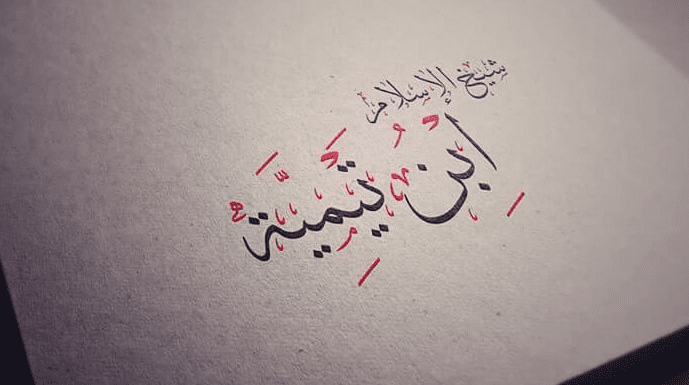 شيخ الإسلام
ابن تيمية